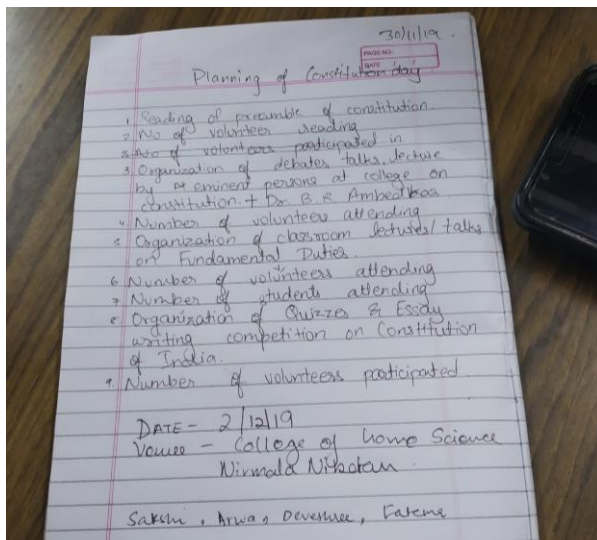 30/11/19.
PAGE NO.
DATE
Planning of Constitution day
1. Reading of preamble of constitution.
2 No of volunteer reading
3. No of volonteers participated in
3 Organization of debates talks, lecture
by eminent persons at college on
constitution. + Dr. B. R Ambedkar
4. Number of volunteers attending
5 Organization of classroom lectures/talks
on Fundamental Duties.
6 Number of volunteers attending
7 Number of students attending
8 Organization of Quizzes & Essay
writing competition on Constitution
of India.
9. Number of volunteers participated.
DATE - 2/12/19
Venue - College of home Science
Nirmala Niketan.
Sakshi, Arwa, Deveshree, Fateme